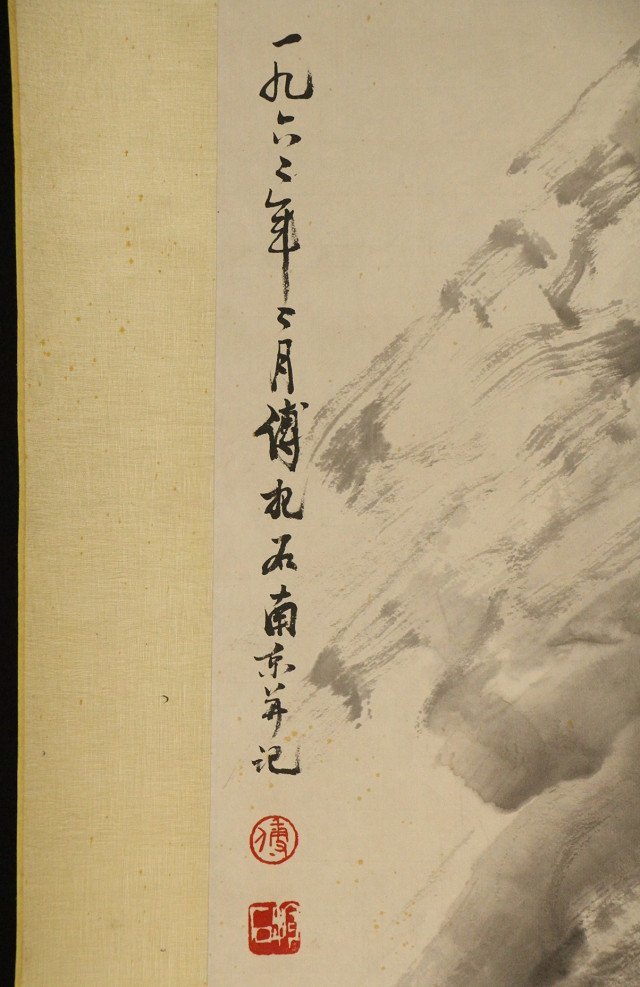 一九六二年二月傅抱石南京并记
傅